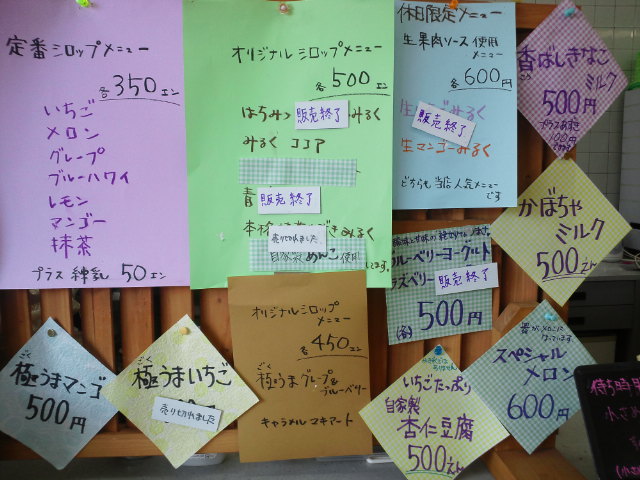 定番シロップメニュー
各350エン
いちご
メロン
グレープ
ブルーハワイ
レモン
マンゴー
抹茶
プラス練乳 50エン
オリジナルシロップメニュー
各500エン
はちみつ 販売終了 みるく
みるく ココア
青 販売終了
売り切れました
自家製あんこ使用
休日限定メニュー
生果肉ソース使用
メニュー
各600円
販売終了
生マンゴーみるく
どちらも当店人気メニュー
です
香ばしきなこ
ミルク
500円
プラスあずき
100円
かぼちゃ
ミルク
500えん
ブルーベリーヨーグルト
ラズベリー 販売終了
(各) 500円
オリジナルシロップ
メニュー
各450エン
極うまグレープ&
ブルーベリー
キャラメルマキアート
ごく
極うまマンゴ
500円
ごく
極うまいちご
売り切れました
いちごたっぷり
自家製
杏仁豆腐
500えん
スペシャル
メロン
600円